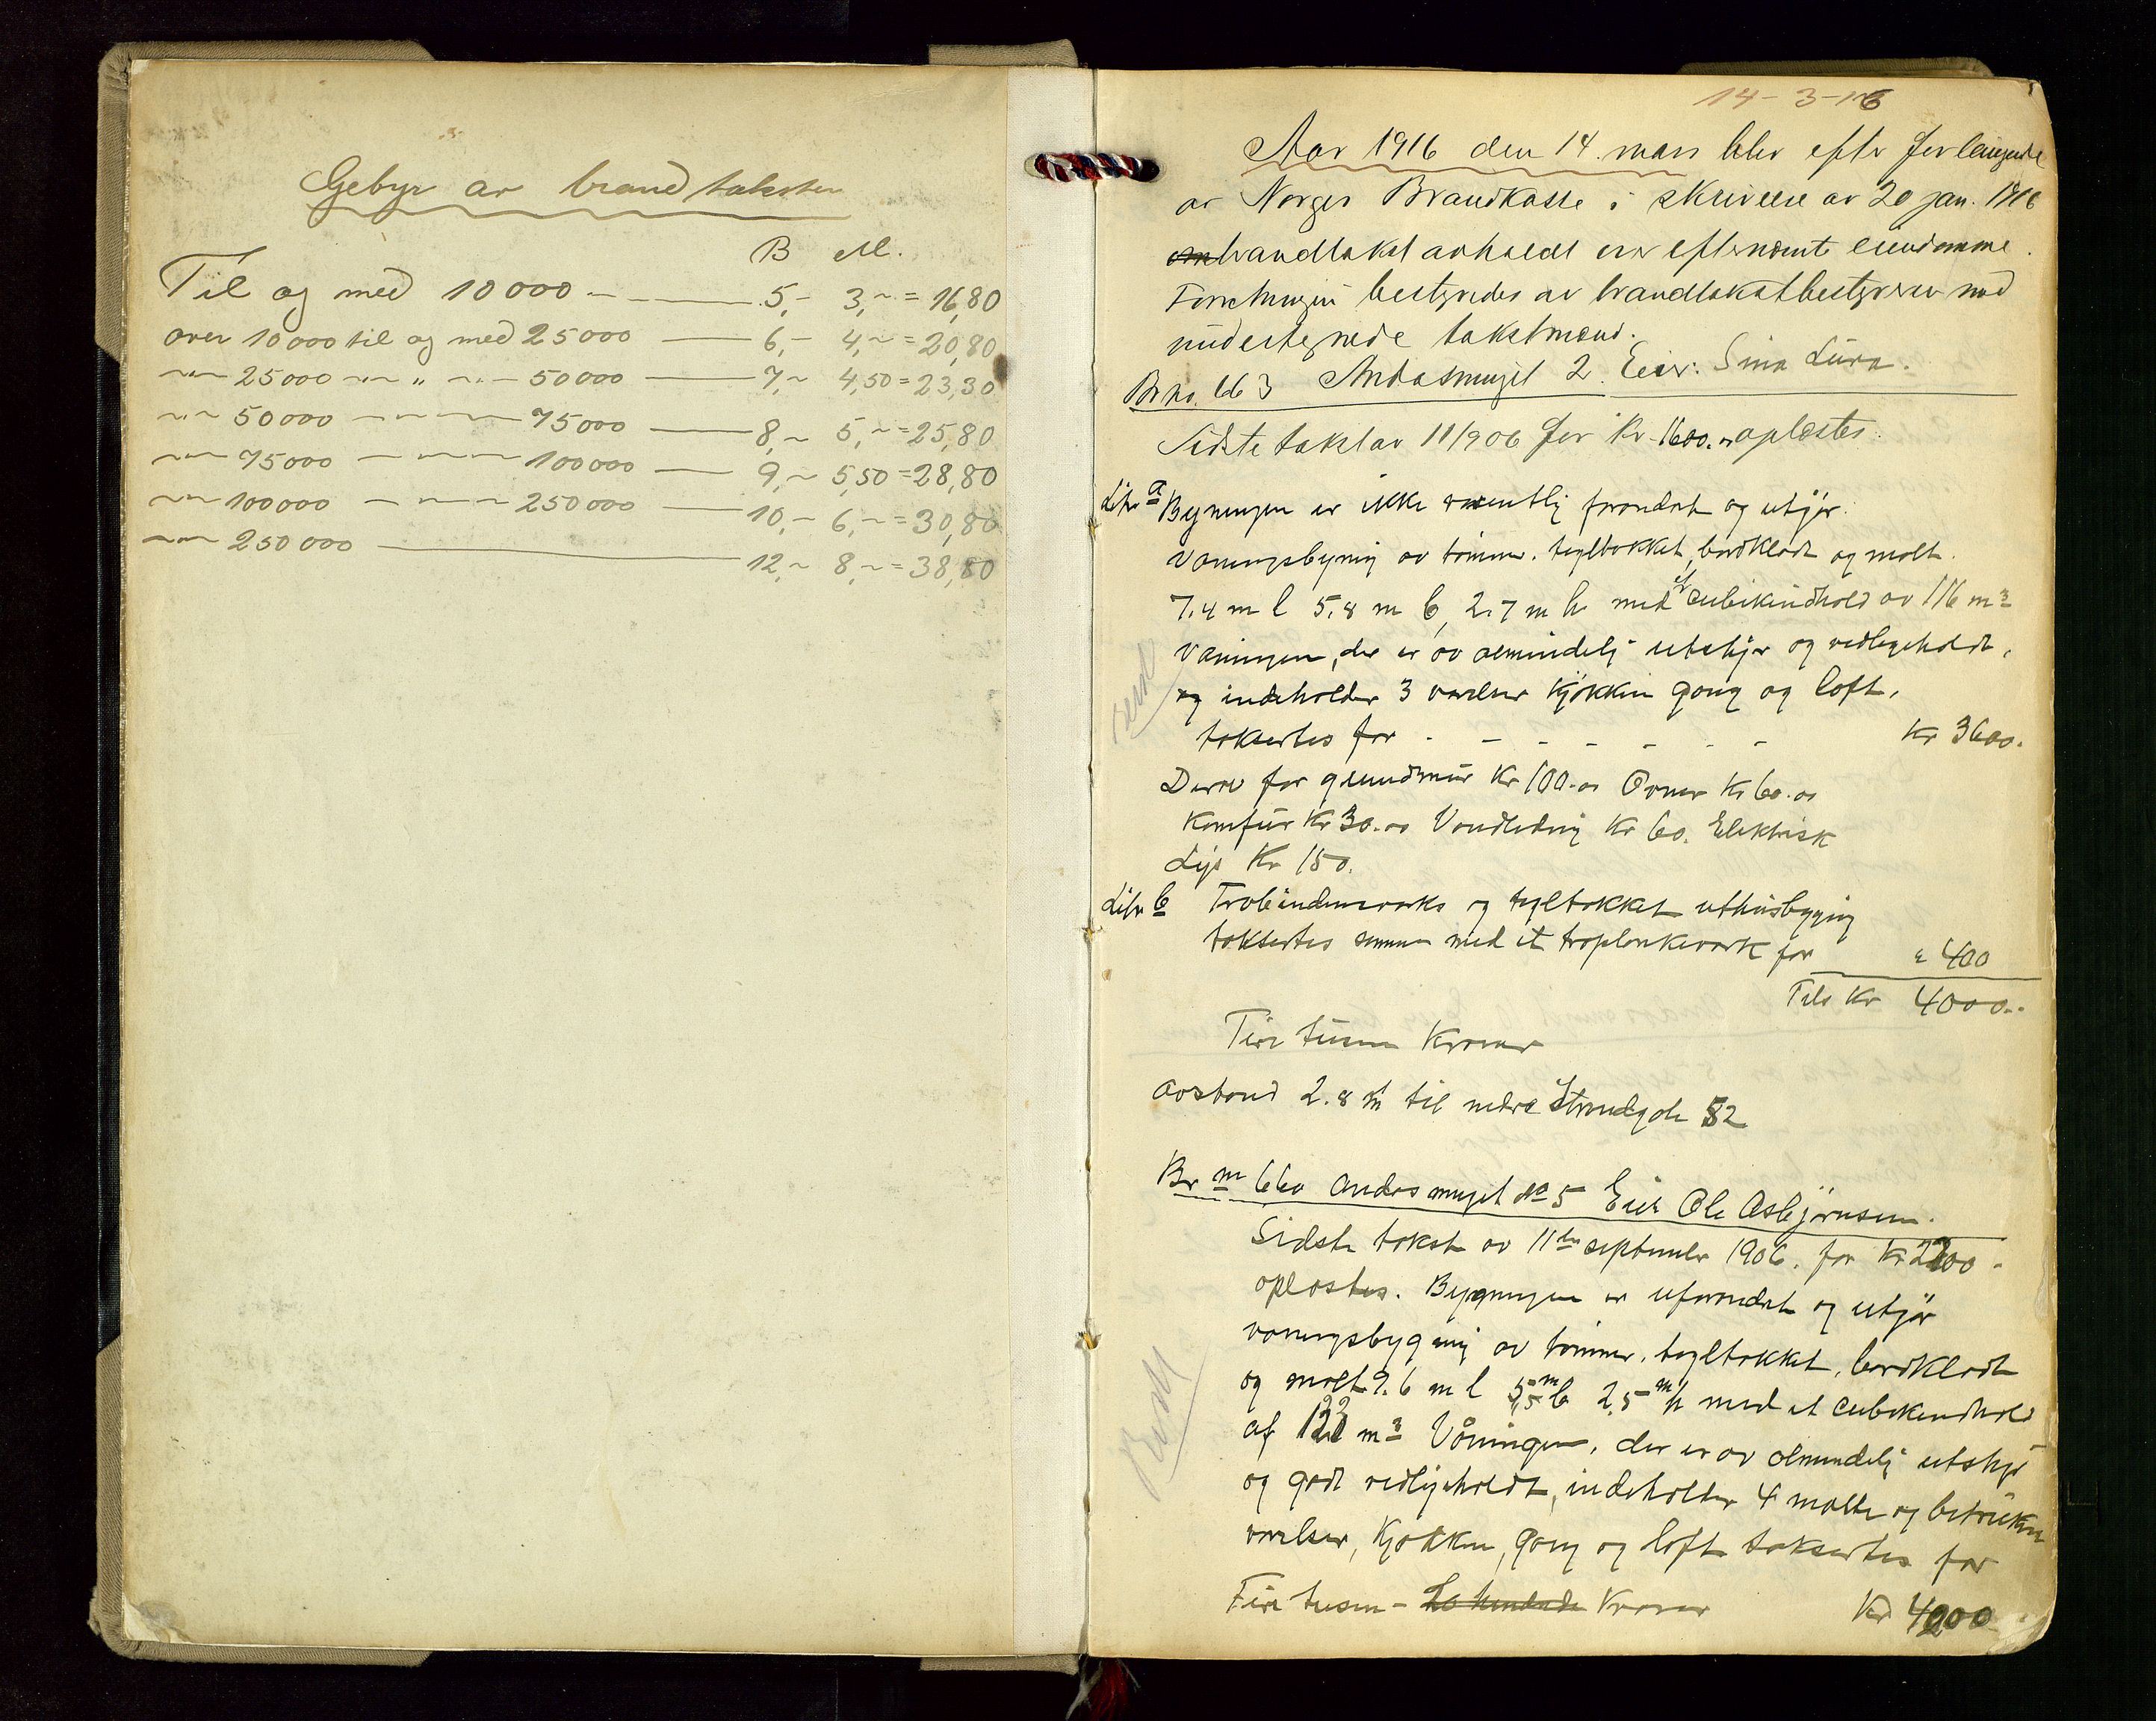 Gebyr av brandtakster
B M.
Til og med 10000 - 5,- 3,- = 16,80
over 10000 til og med 25000 - 6,- 4,- = 20,80
-"- 25000 -"- " -"- 50000 - 7,- 4,50 = 23,30
-"- 50000 - -"- 75000 - 8,- 5,- = 25,80
-"- 75000 - -"- 100000 - 9,- 5,50 = 28,80
-"- 100000 - -"- 250000 - 10,- 6,- = 30,80
-"- 250000 - 12,- 8,- = 38,80
14-3-16
Aar 1916 den 14. mars blev efter forlangende
av Norges Brandkasse i skrivelse av 20 jan. 1916
brandtakst avholdt over efternævnte eiendomme.
Forretningen bestyredes av brandtakstbestyreren med
undertegnede takstmænd.
Br no. 663 Andasmuget 2. Eier: Sina Lura.
Sidste takst av 11/906 for Kr. 1600.- oplæstes.
Litr a Bygningen er ikke væsentlig forandret og utgjør.
Vaaningsbygning av tømmer, tegltækket, bordklædt og malt.
7.4 m l 5.8 m b, 2.7 m h med et cubikindhold av 116 m3
Vaaningen, der er av almindelig utstyr og vedlikeholdt,
og indeholder 3 værelser kjøkken gang og loft,
taksertes for - - - - - - - Kr 3600.
Derav for grundmur Kr 100.00 Ovner Kr 60.00
Komfur Kr 30.00 Vandledning Kr 60. Elektrisk
Lys Kr 150.
Litr b Træbindingsverks og tegltækket uthusbygning
taksertes sammen med et træplankeverk for " 400
Tils Kr 4000..
Fire tusen Kroner
avstand 2.8 m til nedre Strandgate 52
Br nr 660 Andasmuget no 5 Eier Ole Asbjørnsen.
Sidste takst av 11te september 1906. for Kr 2200 -
oplæstes. Bygningen er uforandret og utgjør
vaaningsbygning av tømmer, tegltækket, bordklædt
og malt 9.6 m l 5,5 m b 2,5 m h med et cubikindhold
af 122 m3 Våningen, der er av almindelig utstyr
og godt vedlikeholdt, indeholder 4 malte og betrukne
værelser, kjøkken, gang og loft taksertes for
Fire tusen - to hundrede Kroner Kr 4000